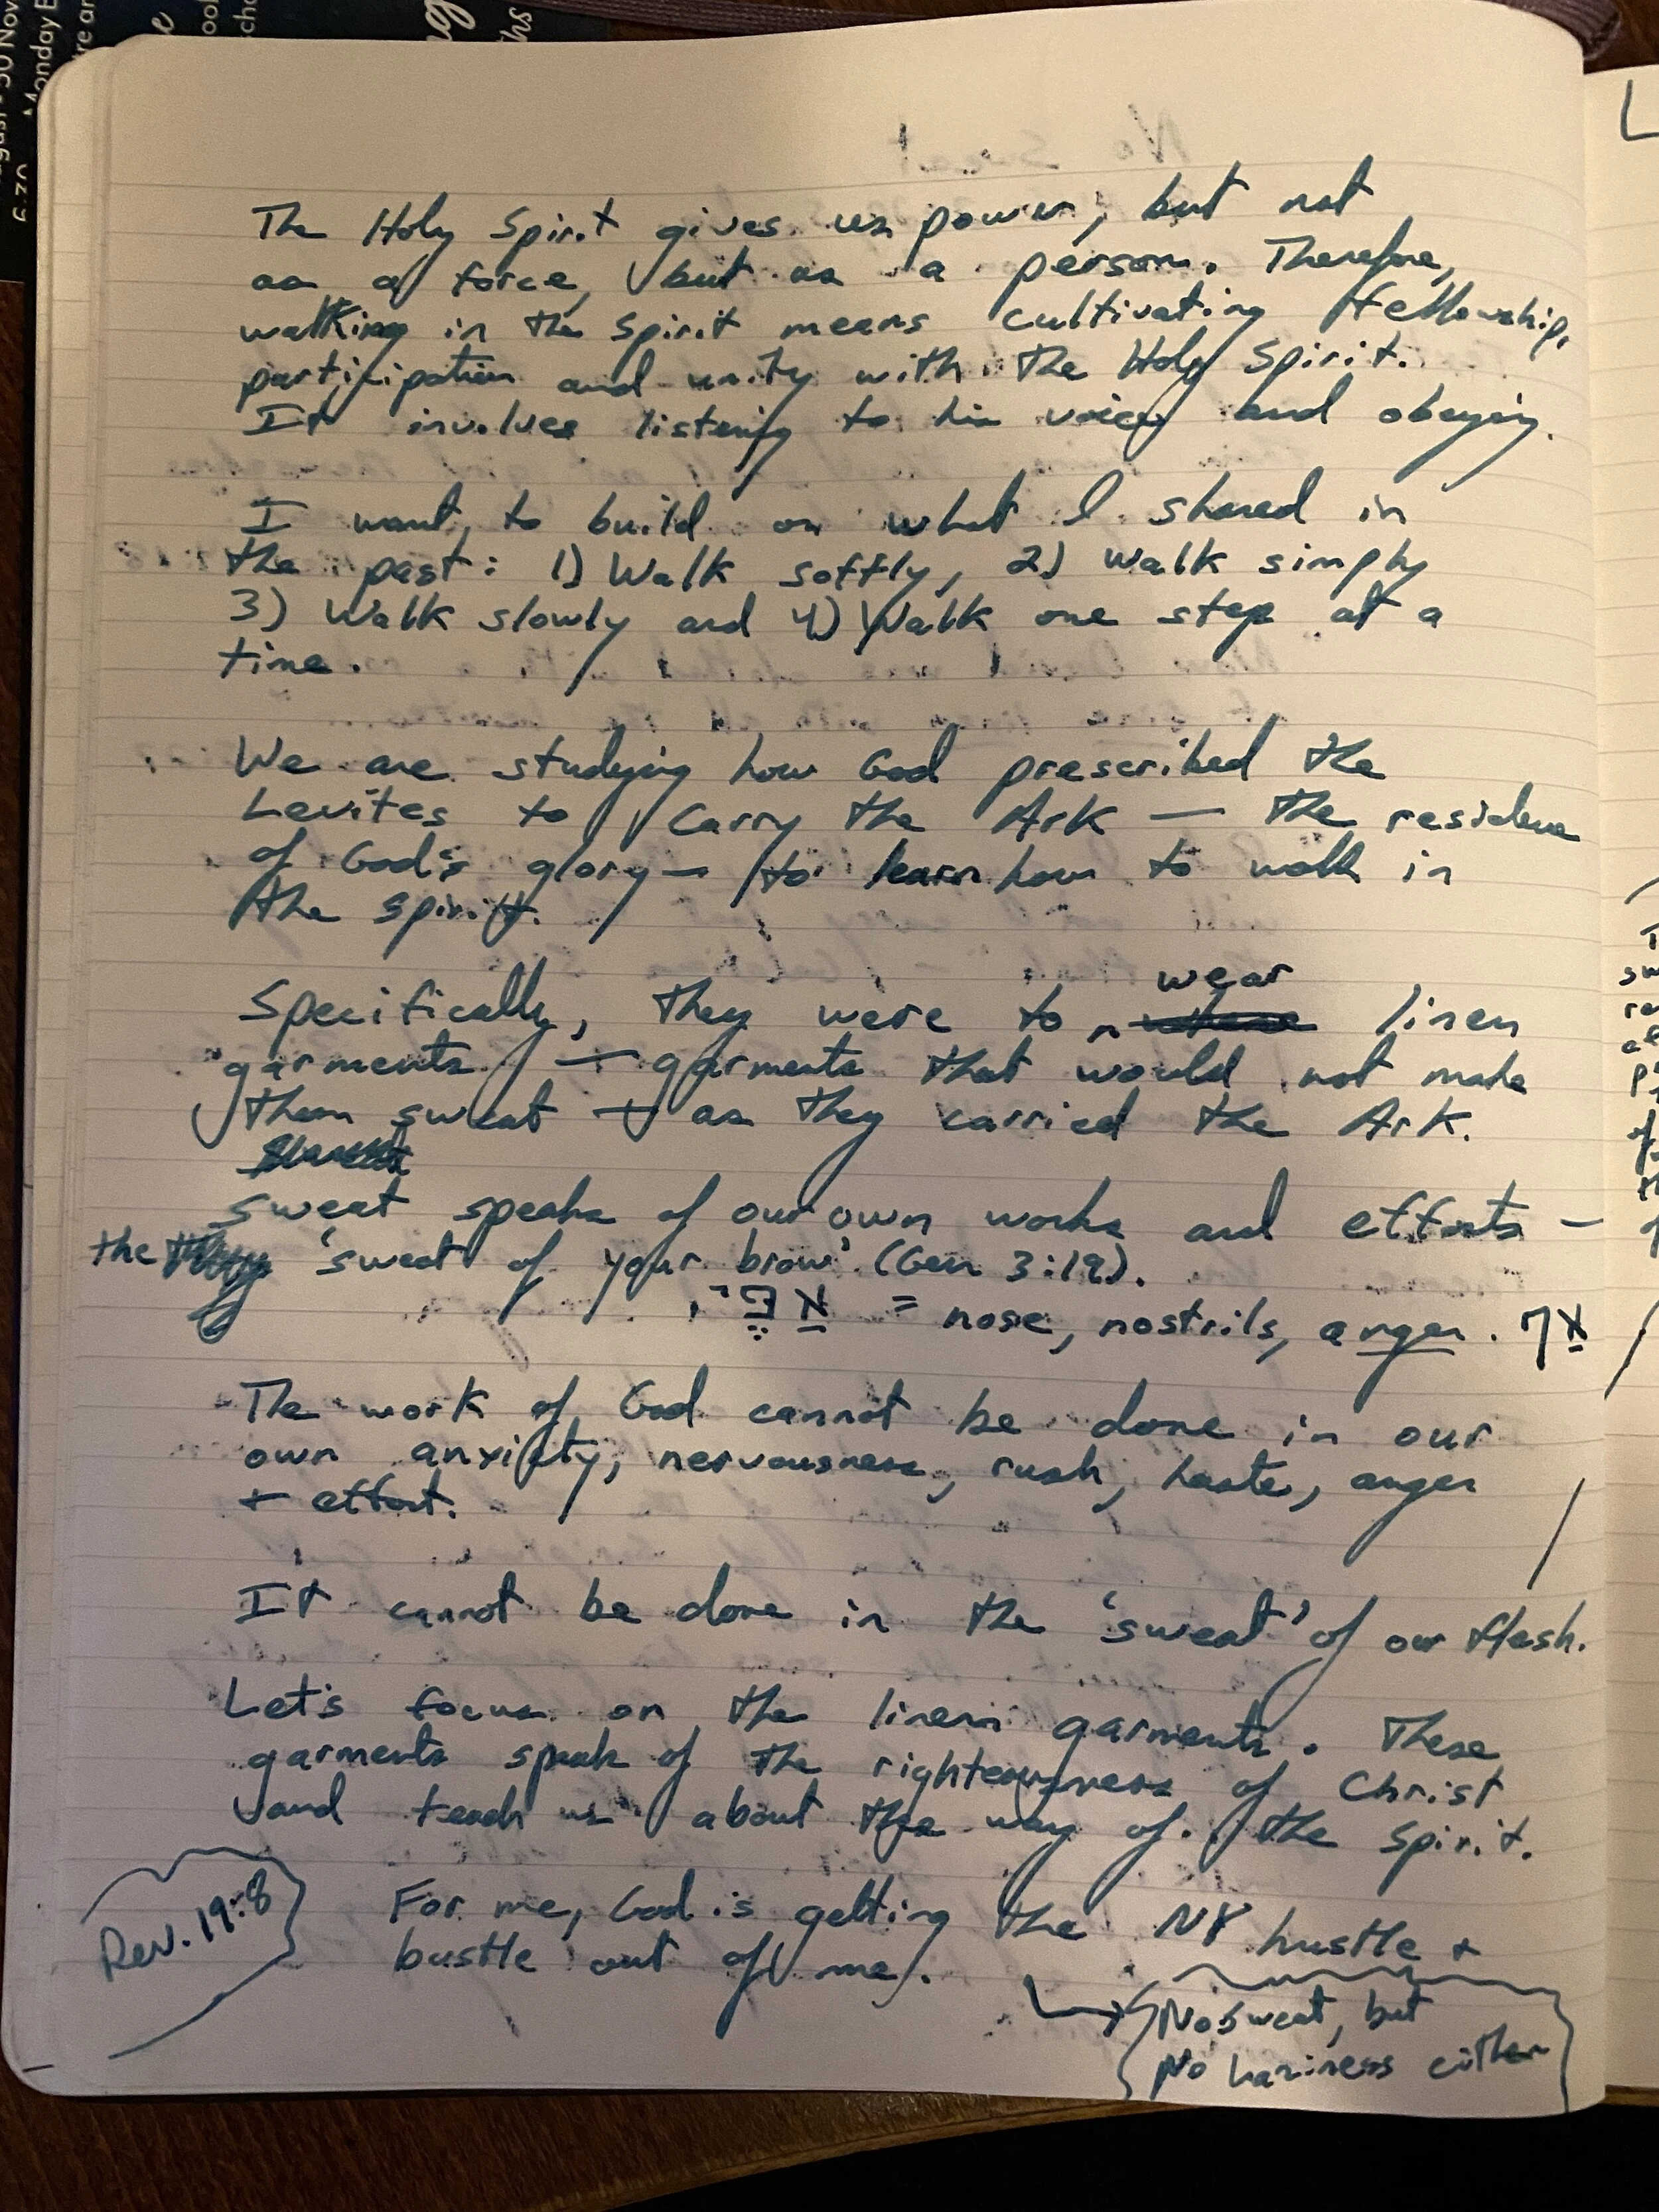 The Holy Spirit gives us power, but not
as a force, but as a person. Therefore,
walking in the Spirit means cultivating fellowship,
participation and unity with the Holy Spirit.
It involves listening to his voice and obeying.
I want to build on what I shared in
the past: 1) Walk softly, 2) Walk simply
3) Walk slowly and 4) Walk one step at a
time.
We are studying how God prescribed the
Levites to carry the Ark — the residence
of God's glory — to learn how to walk in
the Spirit.
Specifically, they were to wear linen
garments — garments that would not make
them sweat — as they carried the Ark.
Sweat speaks of our own works and efforts —
the 'sweat of your brow' (Gen 3:19).
= nose, nostrils, anger. אַף
The work of God cannot be done in our
own anxiety, nervousness, rush, haste, anger
+ effort.
It cannot be done in the 'sweat' of our flesh.
Let's focus on the linen garments. These
garments speak of the righteousness of Christ
and teach us about the way of the Spirit.
Rev. 19:8
For me, God is getting the NY hustle +
bustle out of me.
No sweat, but
No laziness either